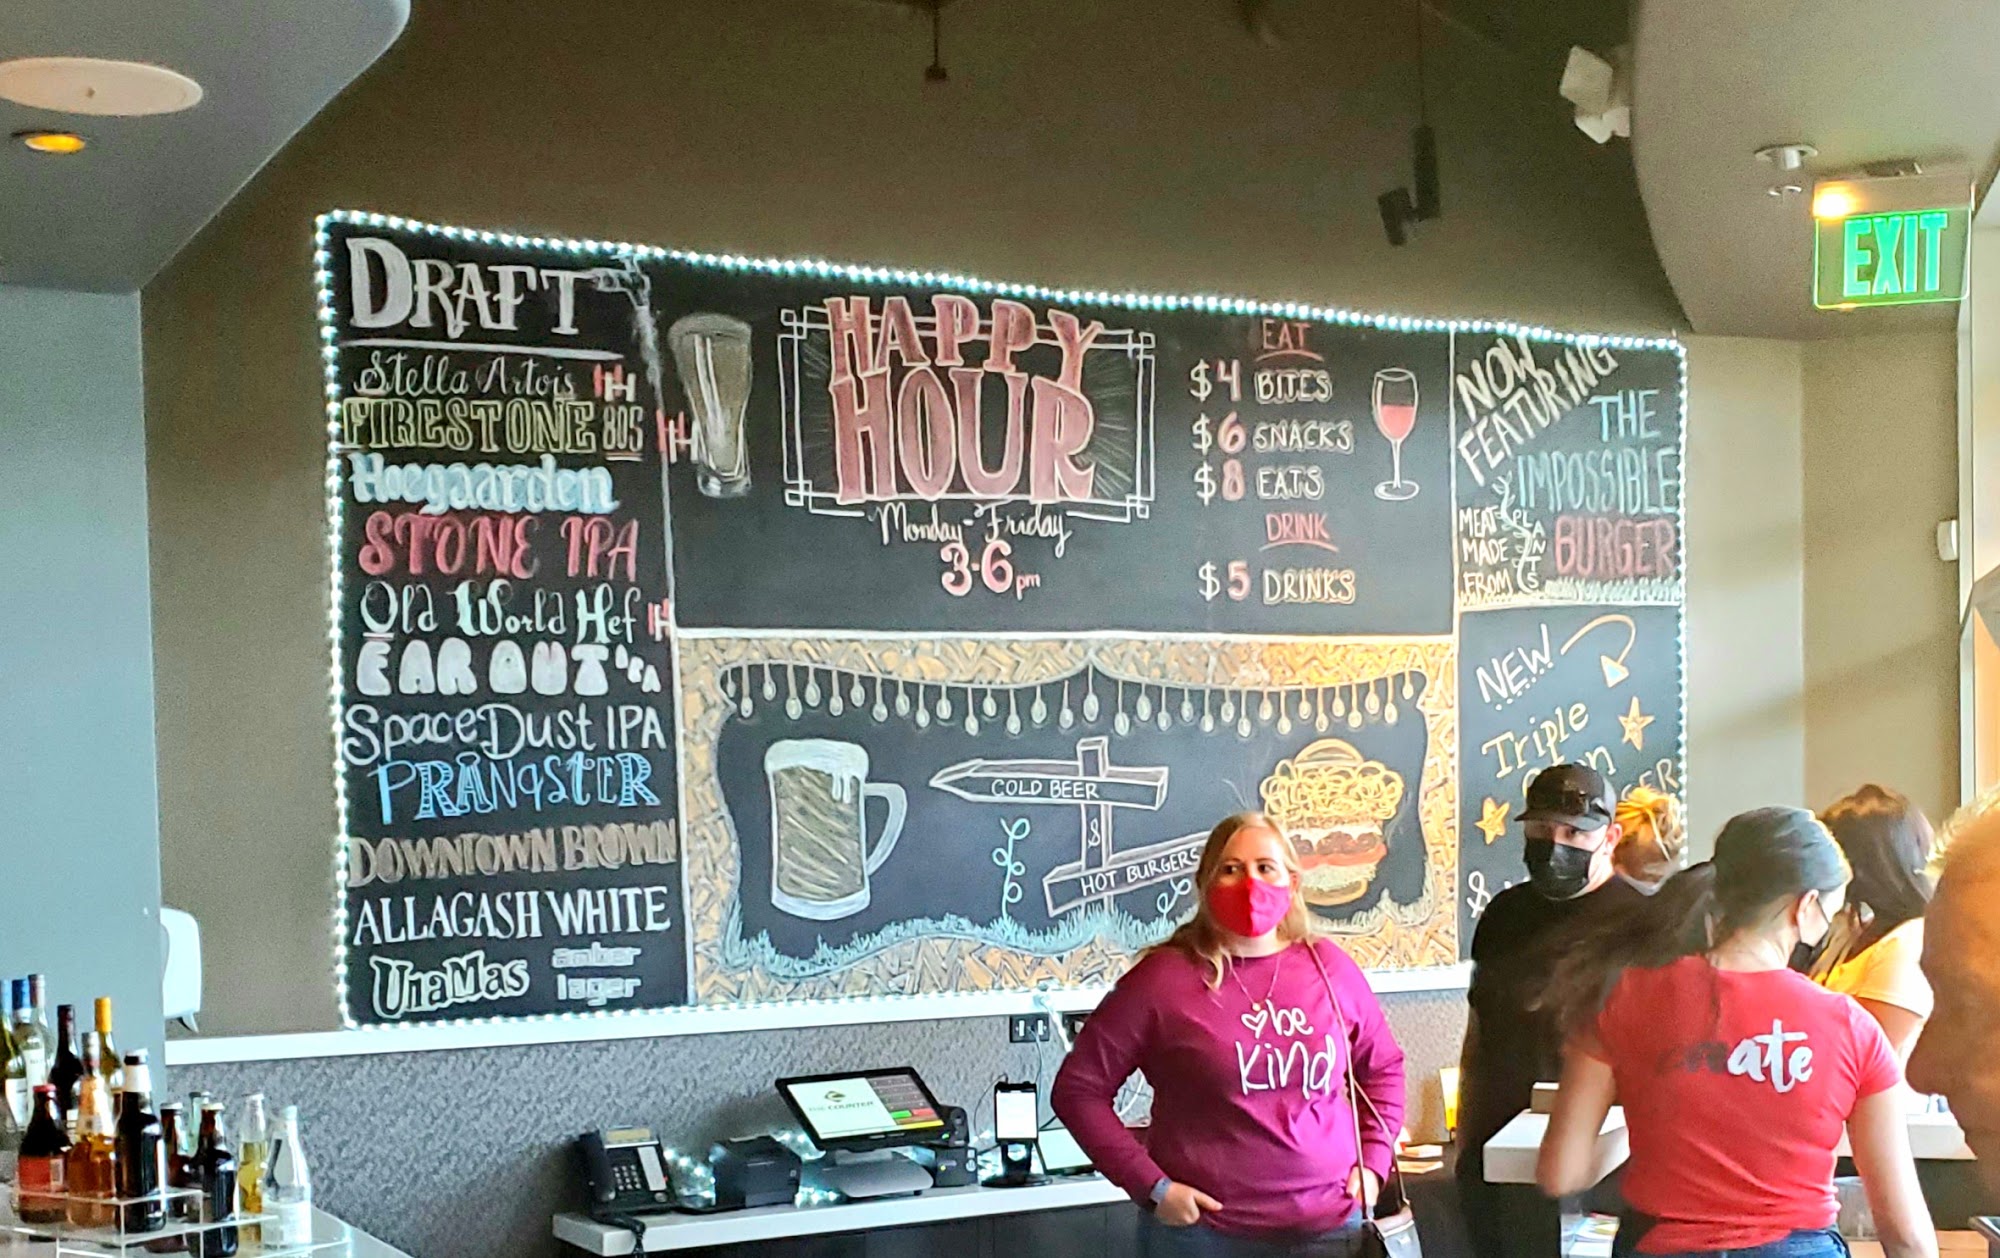 DRAFT
Stella Artois HH
FIRESTONE 805 HH
Hoegaarden
STONE IPA
Old World Hef HH
FAR OUT IPA
SpaceDust IPA
PRANQSTER
DOWNTOWN BROWN
ALLAGASH WHITE
UnaMas amber
lager
HAPPY
HOUR
Monday-Friday
3-6pm
EAT
$4 BITES
$6 SNACKS
$8 EATS
DRINK
$5 DRINKS
COLD BEER
&
HOT BURGERS
NOW
FEATURING
THE
IMPOSSIBLE
BURGER
MEAT
MADE
FROM
PLANTS
NEW
Triple
EXIT
be
kind
THE COUNTER